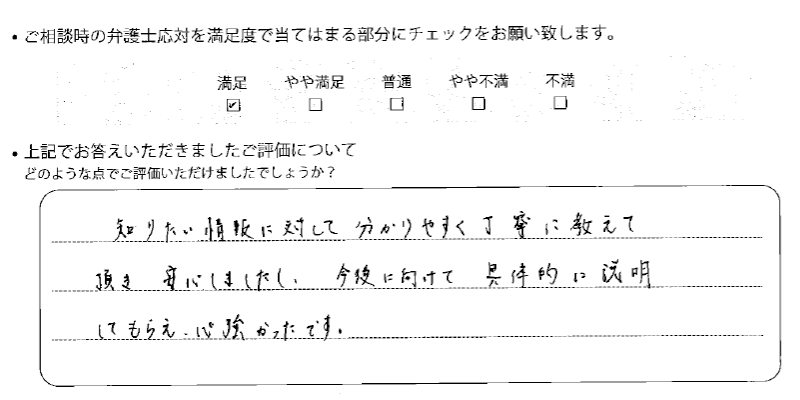 ・ご相談時の弁護士応対を満足度で当てはまる部分にチェックをお願い致します。
満足 やや満足 普通 やや不満 不満
☑ □ □ □ □
・上記でお答えいただきましたご評価について
どのような点でご評価いただけましたでしょうか？
知りたい情報に対して分かりやすく丁寧に教えて
頂き安心しましたし、今後に向けて具体的に説明
してもらえ、心強かったです。